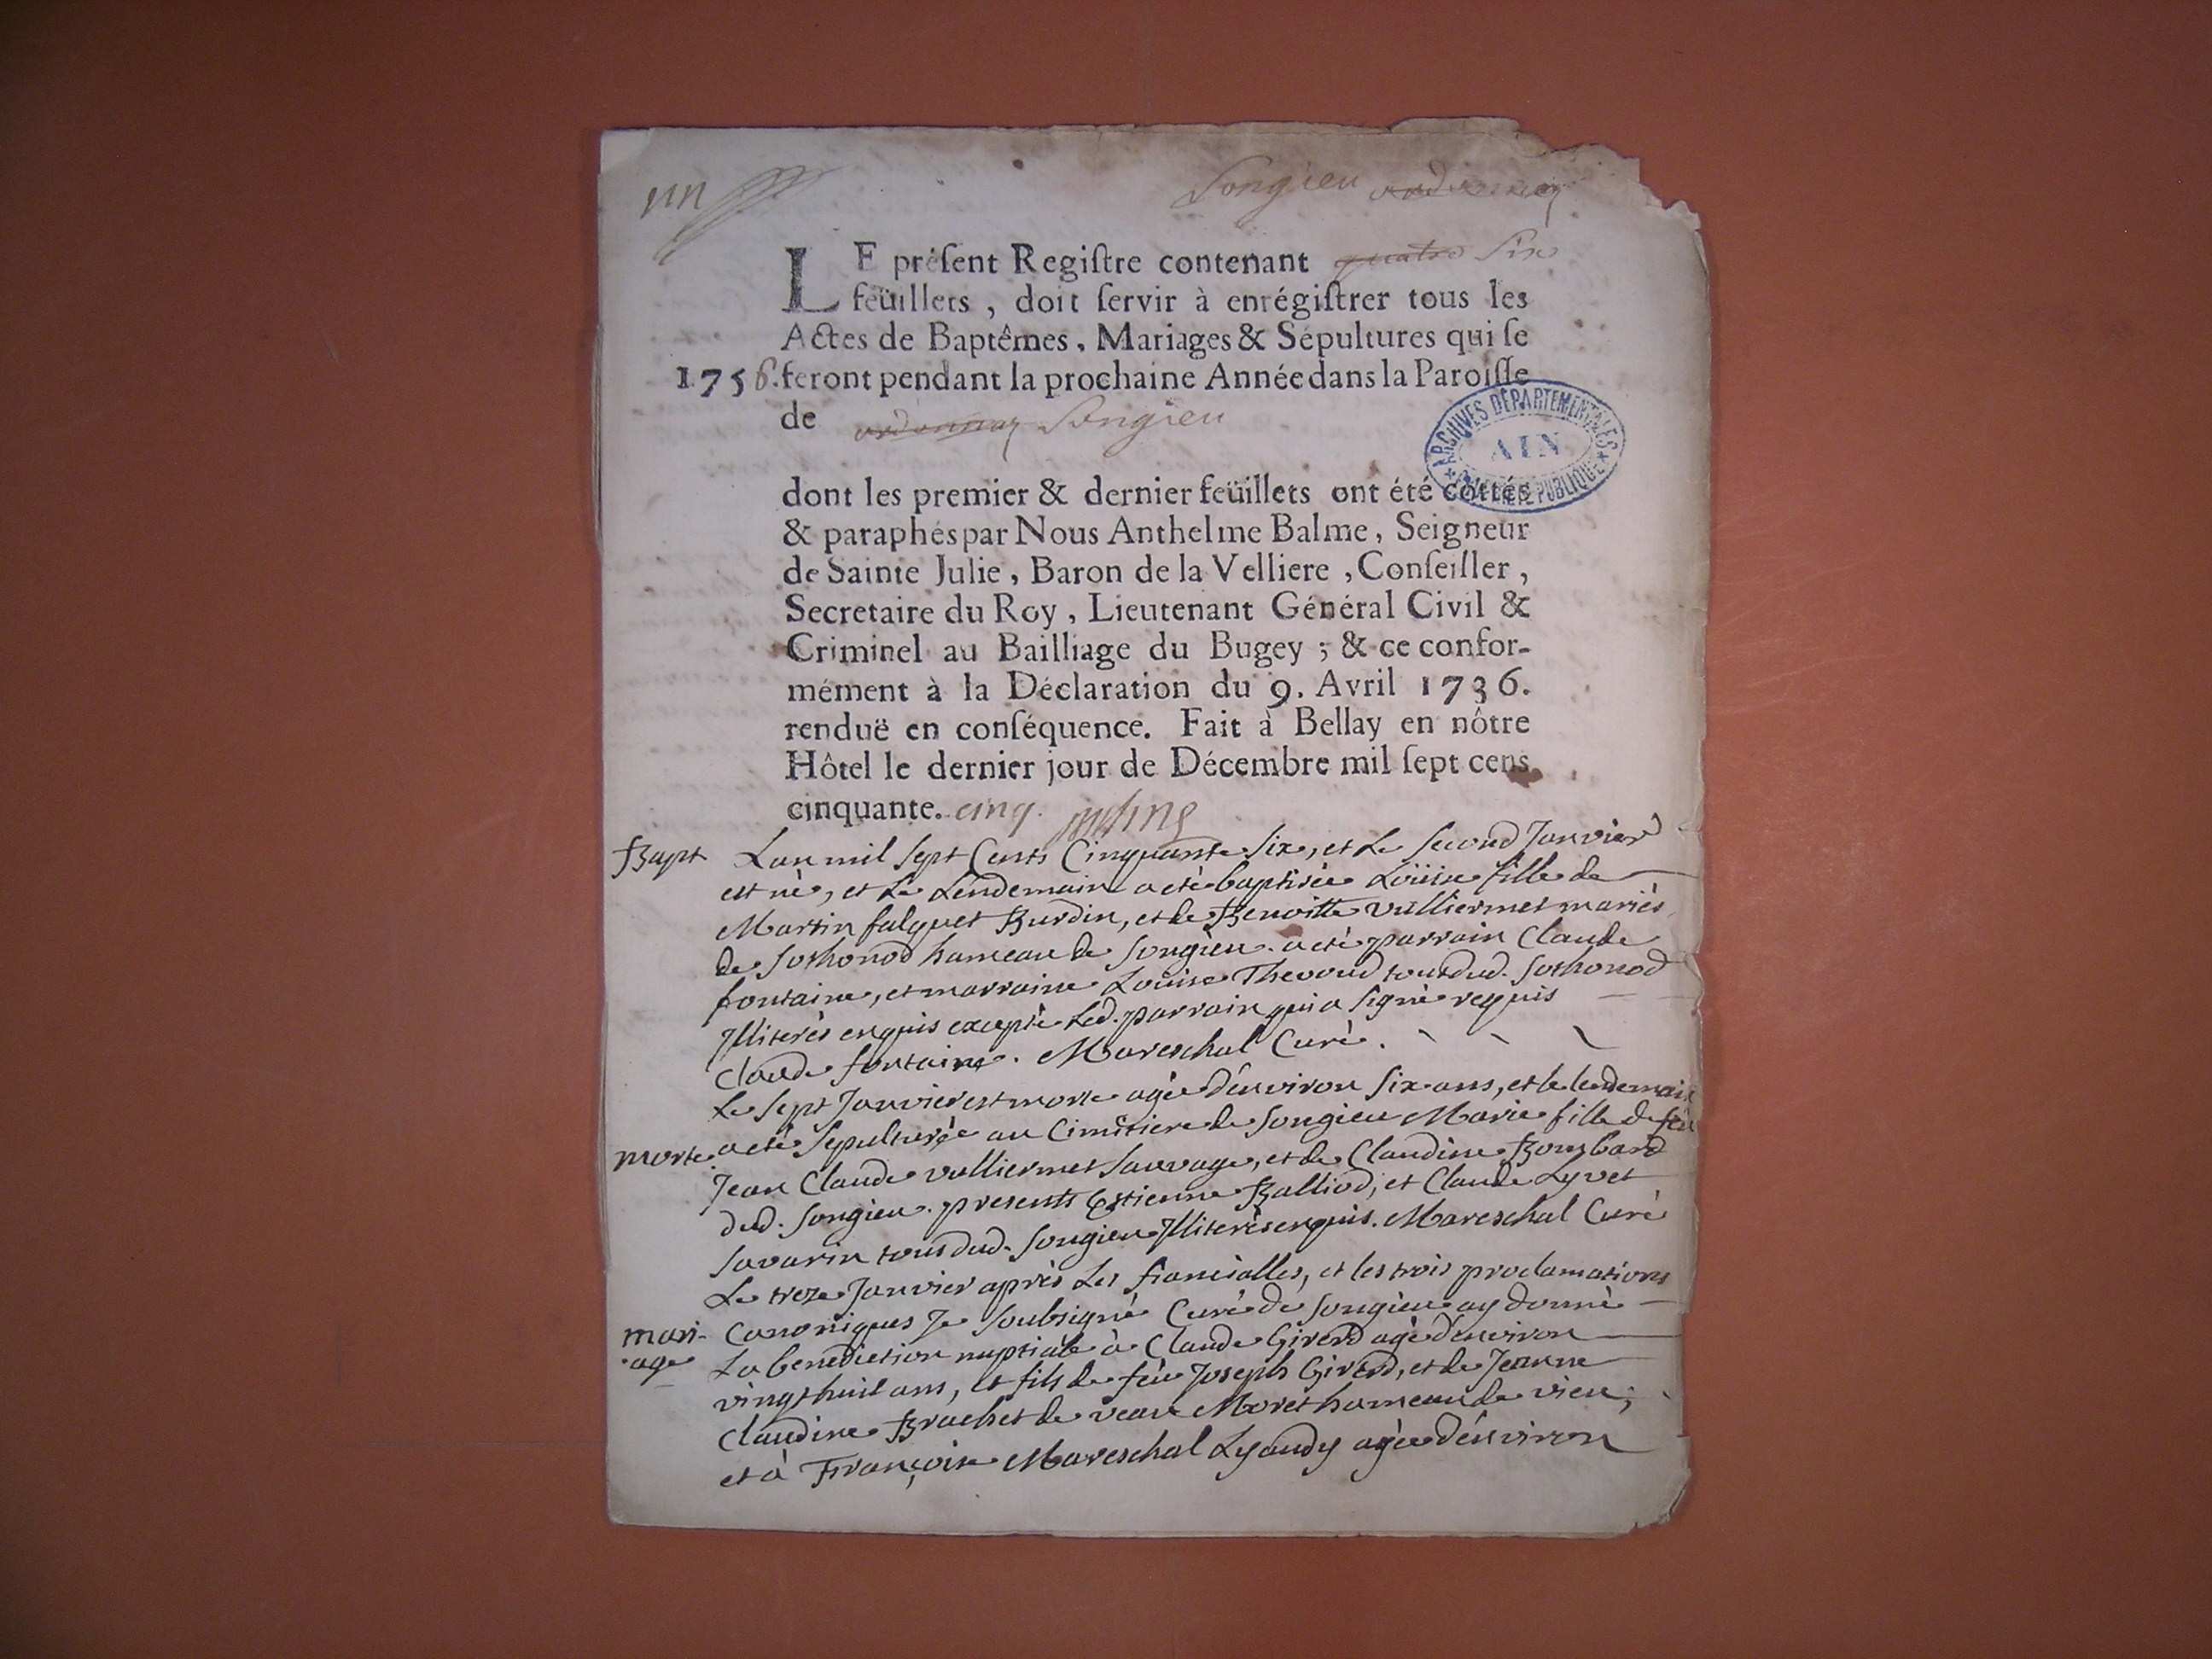 un
Songieu ordonnaz
LE préſent Regiſtre contenant quatre Six
feüillets, doit ſervir à enrégiſtrer tous les
Actes de Baptêmes, Mariages & Sépultures qui ſe
1756. feront pendant la prochaine Année dans la Paroiſſe
de ordonnaz Songieu
ARCHIVES DÉPARTEMENTALES
AIN
PUBLIQUE
dont les premier & dernier feüillets ont été cottés
& paraphés par Nous Anthelme Balme, Seigneur
de Sainte Julie, Baron de la Velliere, Conſeiller,
Secretaire du Roy, Lieutenant Général Civil &
Criminel au Bailliage du Bugey; & ce confor-
mément à la Déclaration du 9. Avril 1736.
renduë en conſéquence. Fait à Bellay en nôtre
Hôtel le dernier jour de Décembre mil ſept cens
cinquante. cinq.
Bapt Lan mil Sept Cents Cinquante Six, et Le Second Janvier
est né, et Le Lendemain a eté baptisée Loüise fille de
Martin falquet Burdin, et de Benoitte vulliermet mariés
de Sothonod hameau de Songieu. a eté parrain Claude
fontaine, et marraine Loüise Thevond tous dud. Sothonod
Illiterés enquis excepté Led. parrain qui a signé requis
Claude fontaine. Mareschal Curé.
Le Sept Janvier est morte agée d'environ Six ans, et le lendemain
morte a eté Sepulturée au Cimetiere de Songieu Marie fille de feu
Jean Claude vulliermet Sauvage, et de Claudine Bombard
dud. Songieu. presents Estienne Balliod, et Claude Lyvet
Savarin tous dud. Songieu Illiterés enquis. Mareschal Curé
Le treze Janvier aprés Les fiancialles, et les trois proclamations
mari- Canoniques Je Soubsigné Curé de Songieu ay donné
-age La benediction nuptiale à Claude Girerd agé d'environ
vingt huit ans, et fils de feu Joseph Girerd, et de Jeanne
Claudine Brachet de veau Moret hameau de vieu;
et à Françoise Mareschal Lyaudy agée d'environ